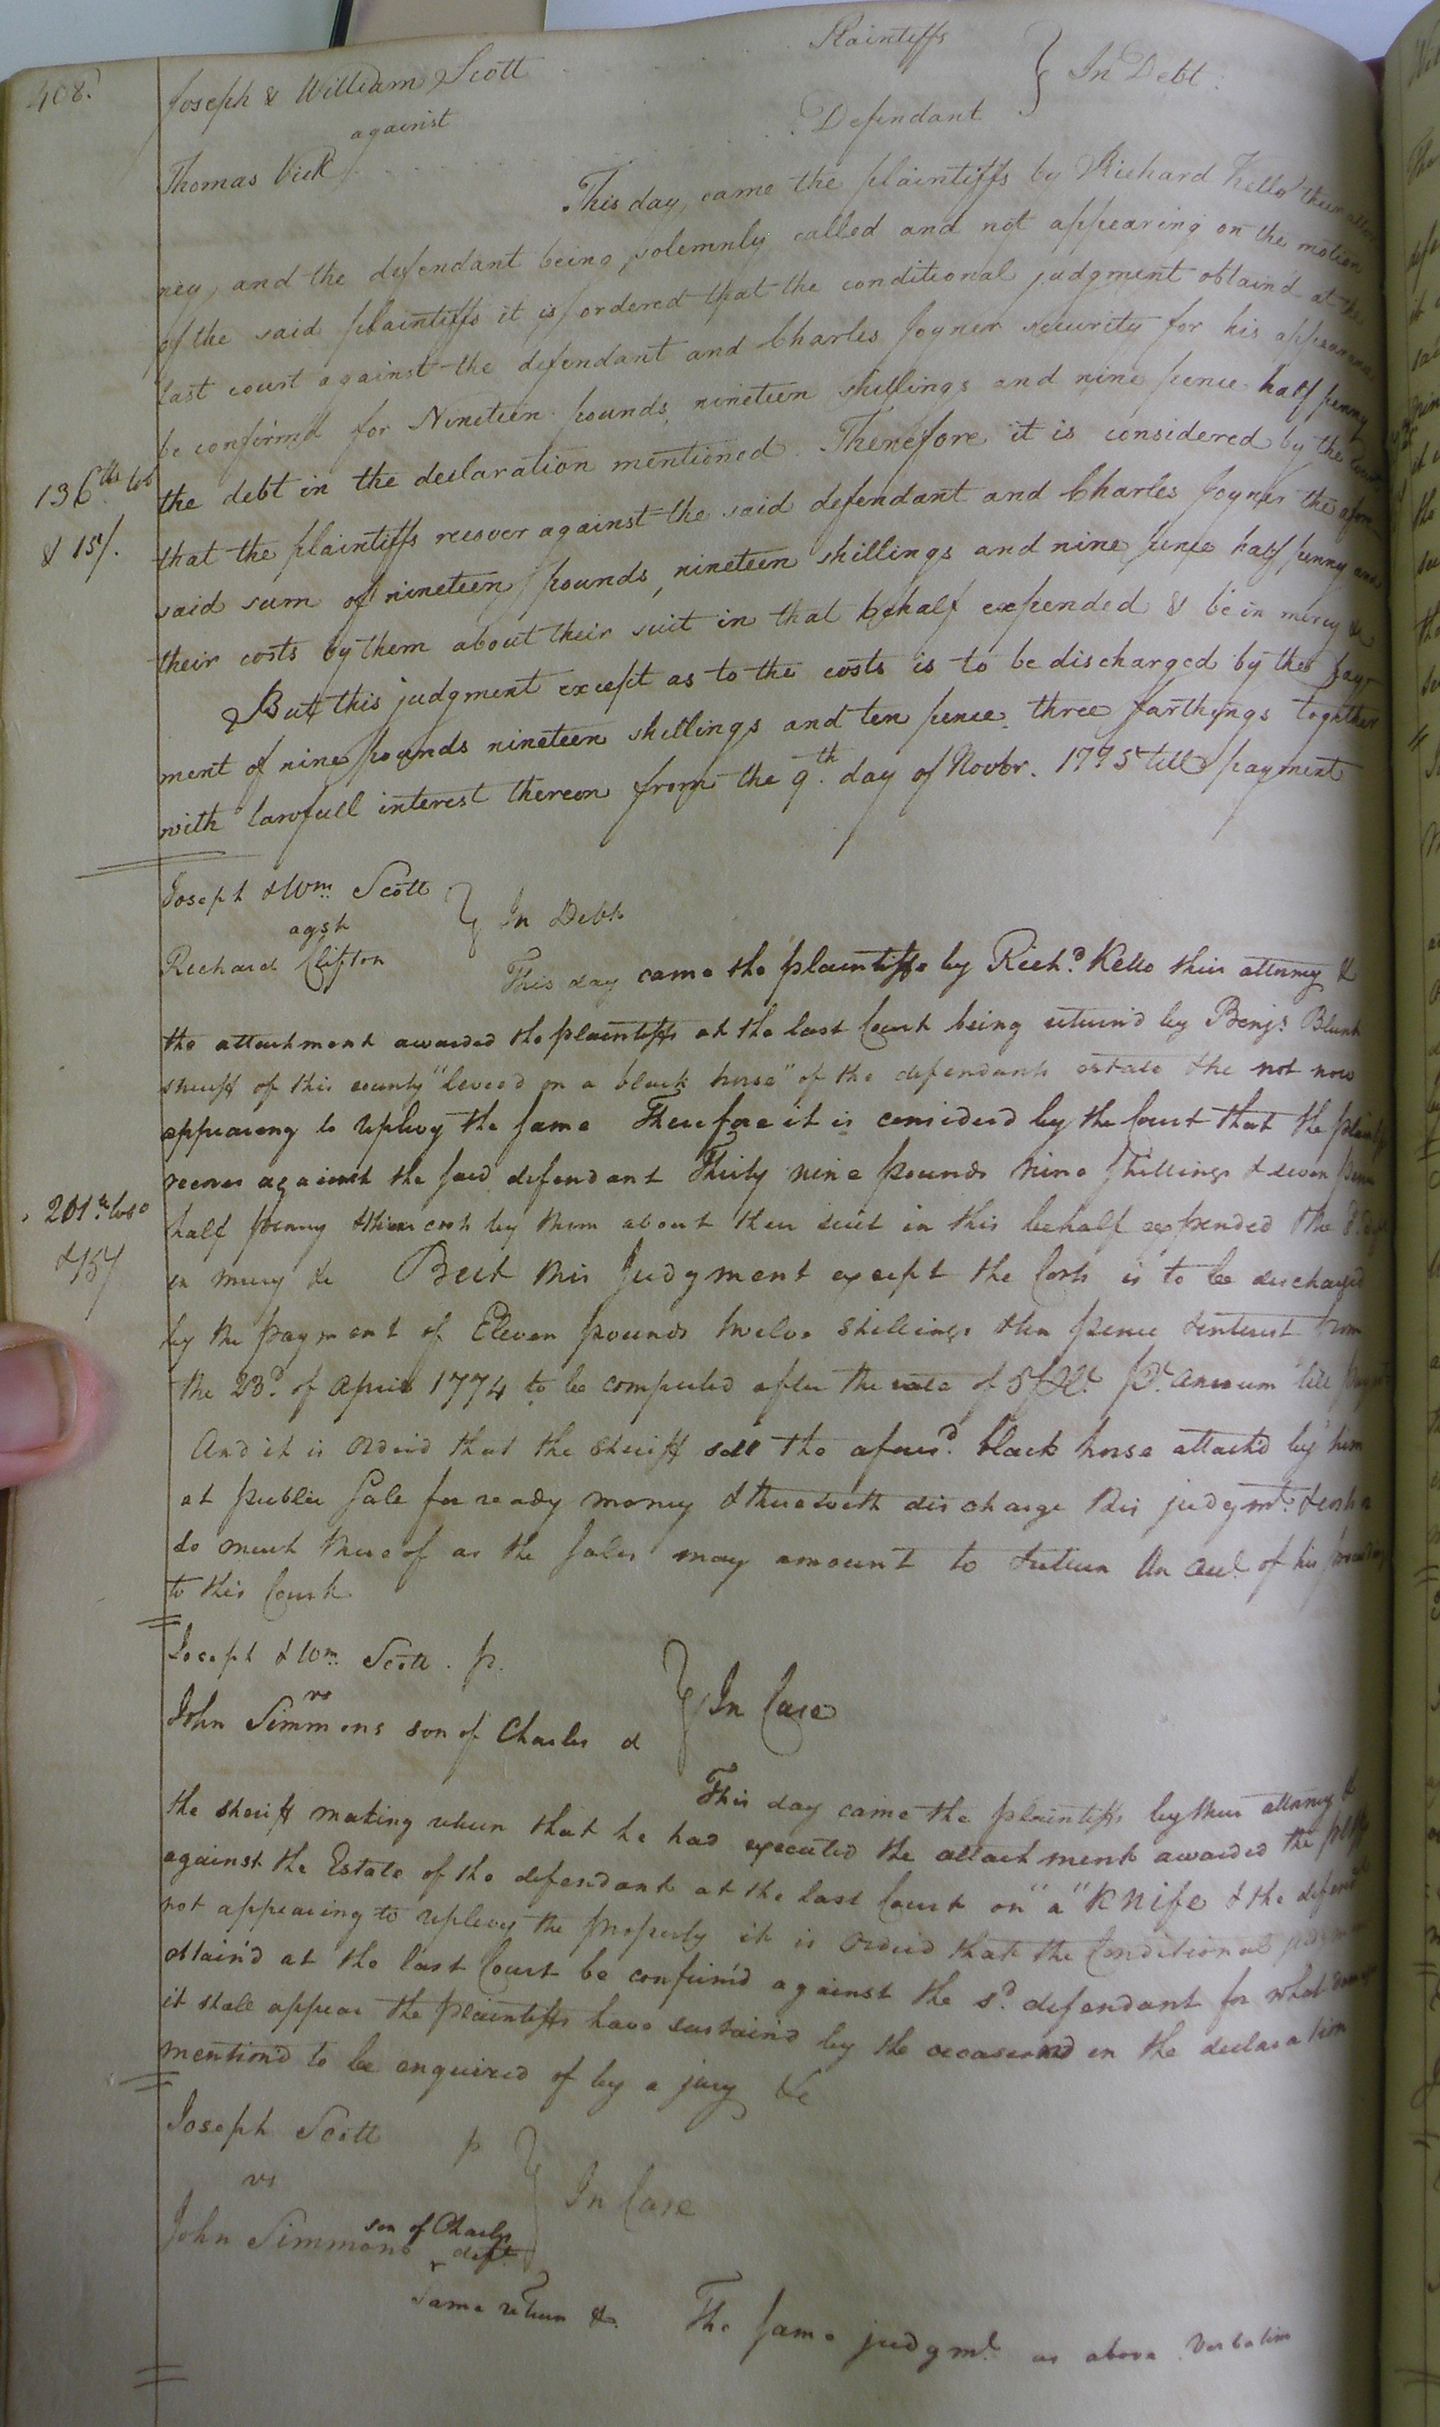 408.
Joseph & William Scott Plaintiffs
against } In Debt.
Thomas Vick Defendant
This day came the plaintiffs by Richard Kello their attor
ney, and the defendant being solemnly called and not appearing on the motion
of the said plaintiffs it is ordered that the conditional judgment obtain'd at the
last court against the defendant and Charles Joyner security for his appearance
be confirm'd for Nineteen pounds, nineteen shillings and nine pence half penny
the debt in the declaration mentioned. Therefore it is considered by the Court
136 lbs tob
& 15/.
that the plaintiffs recover against the said defendant and Charles Joyner the afore
said sum of nineteen pounds, nineteen shillings and nine pence half penny and
their costs by them about their suit in that behalf expended & be in mercy &c
But this judgment except as to the costs is to be discharged by the pay
ment of nine pounds nineteen shillings and ten pence three farthings together
with lawfull interest thereon from the 9th. day of Novbr. 1775 till payment
Joseph & Wm. Scott
agst } In Debt
Richard Clifton
This day came the plaintiffs by Richd. Kello their attorney &
the attachment awarded the plaintiffs at the last Court being return'd by Benja. Blunt
sheriff of this county "levied on a black horse" of the defendants estate & he not now
appearing to replevy the same Therefore it is considerd by the Court that the plaintiffs
recover against the said defendant Thirty nine pounds nine shillings & seven pence
201
& 15/
half penny & their costs by them about their suit in this behalf expended & the sd. deft
in mercy &c But this Judgment except the Costs is to be discharged
by the payment of Eleven pounds twelve shillings & ten pence & interest from
the 23d. of April 1774 to be computed after the rate of 5 Pr. Ct. Pr. annum till paymt
And it is orderd that the Sheriff sell the aforesd. black horse attach'd by him
at public sale for ready money & therewith discharge this judgmt. & costs or
so much thereof as the sales may amount to & return an acct. of his proceedings
to this Court
Joseph & Wm. Scott. p.
vs } In Case
John Simmons son of Charles d
This day came the plaintiffs by their attorney &
the sheriff making return that he had executed the attachment awarded the pltffs
against the Estate of the defendant at the last Court on "a" Knife & the defendt
not appearing to replevy the property it is orderd that the Conditional judgmt
obtain'd at the last Court be confirm'd against the sd. defendant for what damages
it shall appear the plaintiffs have sustain'd by the occasion in the declaration
mention'd to be enquired of by a jury &c
Joseph Scott p
vs } In Case
John Simmons son of Charles deft.
Same return &c. The same judgmt. as above Verbatim